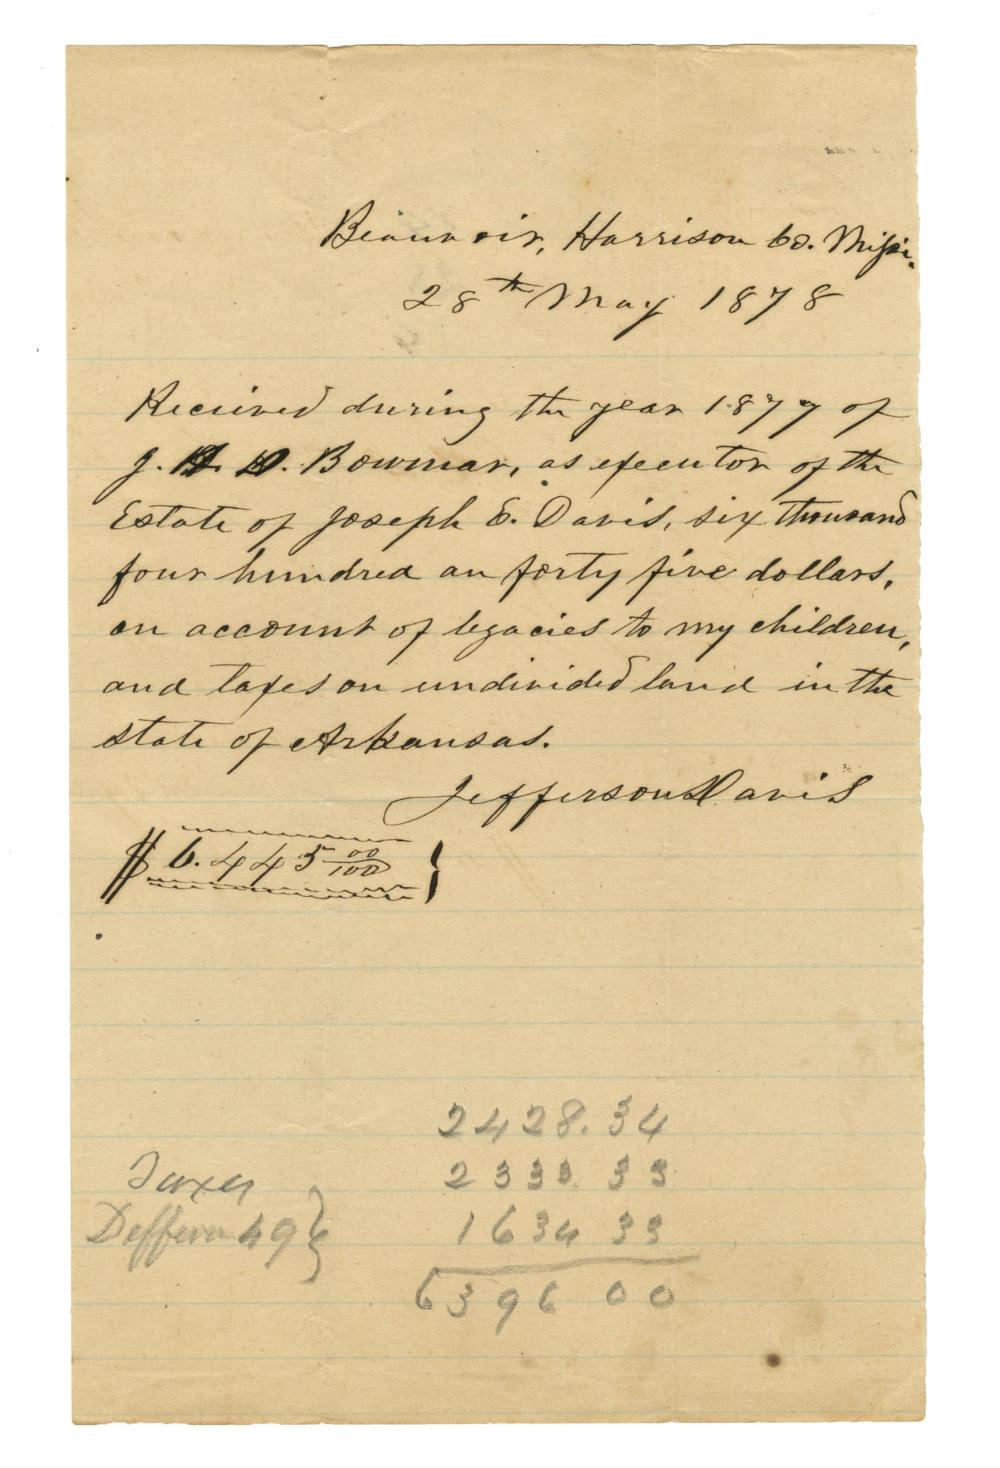 Beauvoir, Harrison Co. Missi.
28th May 1878
Received during the year 1877 of
J. H. D. Bowmar, as executor of the
Estate of Joseph E. Davis, six thousand
four hundred an forty five dollars,
on account of legacies to my children,
and taxes on undivided land in the
state of Arkansas.
Jefferson Davis
$6.445 00/100 }
2428.34
Taxes 2333.33
Differn 49 } 1634 33
6396 00